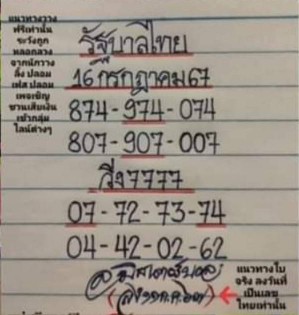 แนวทางวาง
ฟรีเท่านั้น
ระวังถูก
หลอกลวง
จากมักวาง
ลิ้ง ปลอม
เฟส ปลอม
เพจเชิญ
ชวนเสียเงิน
เข้ากลุ่ม
ไลน์ต่างๆ
รัฐบาลไทย
16 กรกฎาคม 67
874-974-074
807-907-007
วิ่ง 7777
07-72-73-74
04-42-02-62
แนวทางใบ
จริง ลงวันที่
เป็นเลข
ไทยเท่านั้น